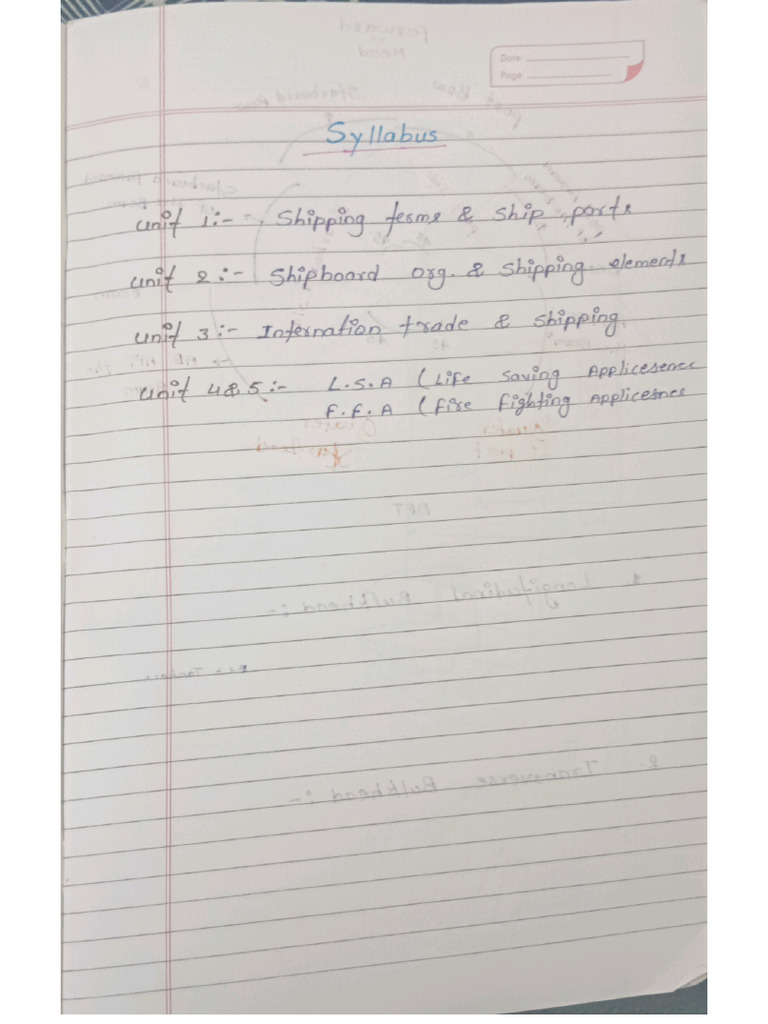 Date
Page
Syllabus
Unit 1:- Shipping terms & Ship parts
Unit 2:- Shipboard org. & Shipping elements
Unit 3:- Internation trade & Shipping
Unit 4&5:- L.S.A (Life Saving
F.F.A (Fire Fighting